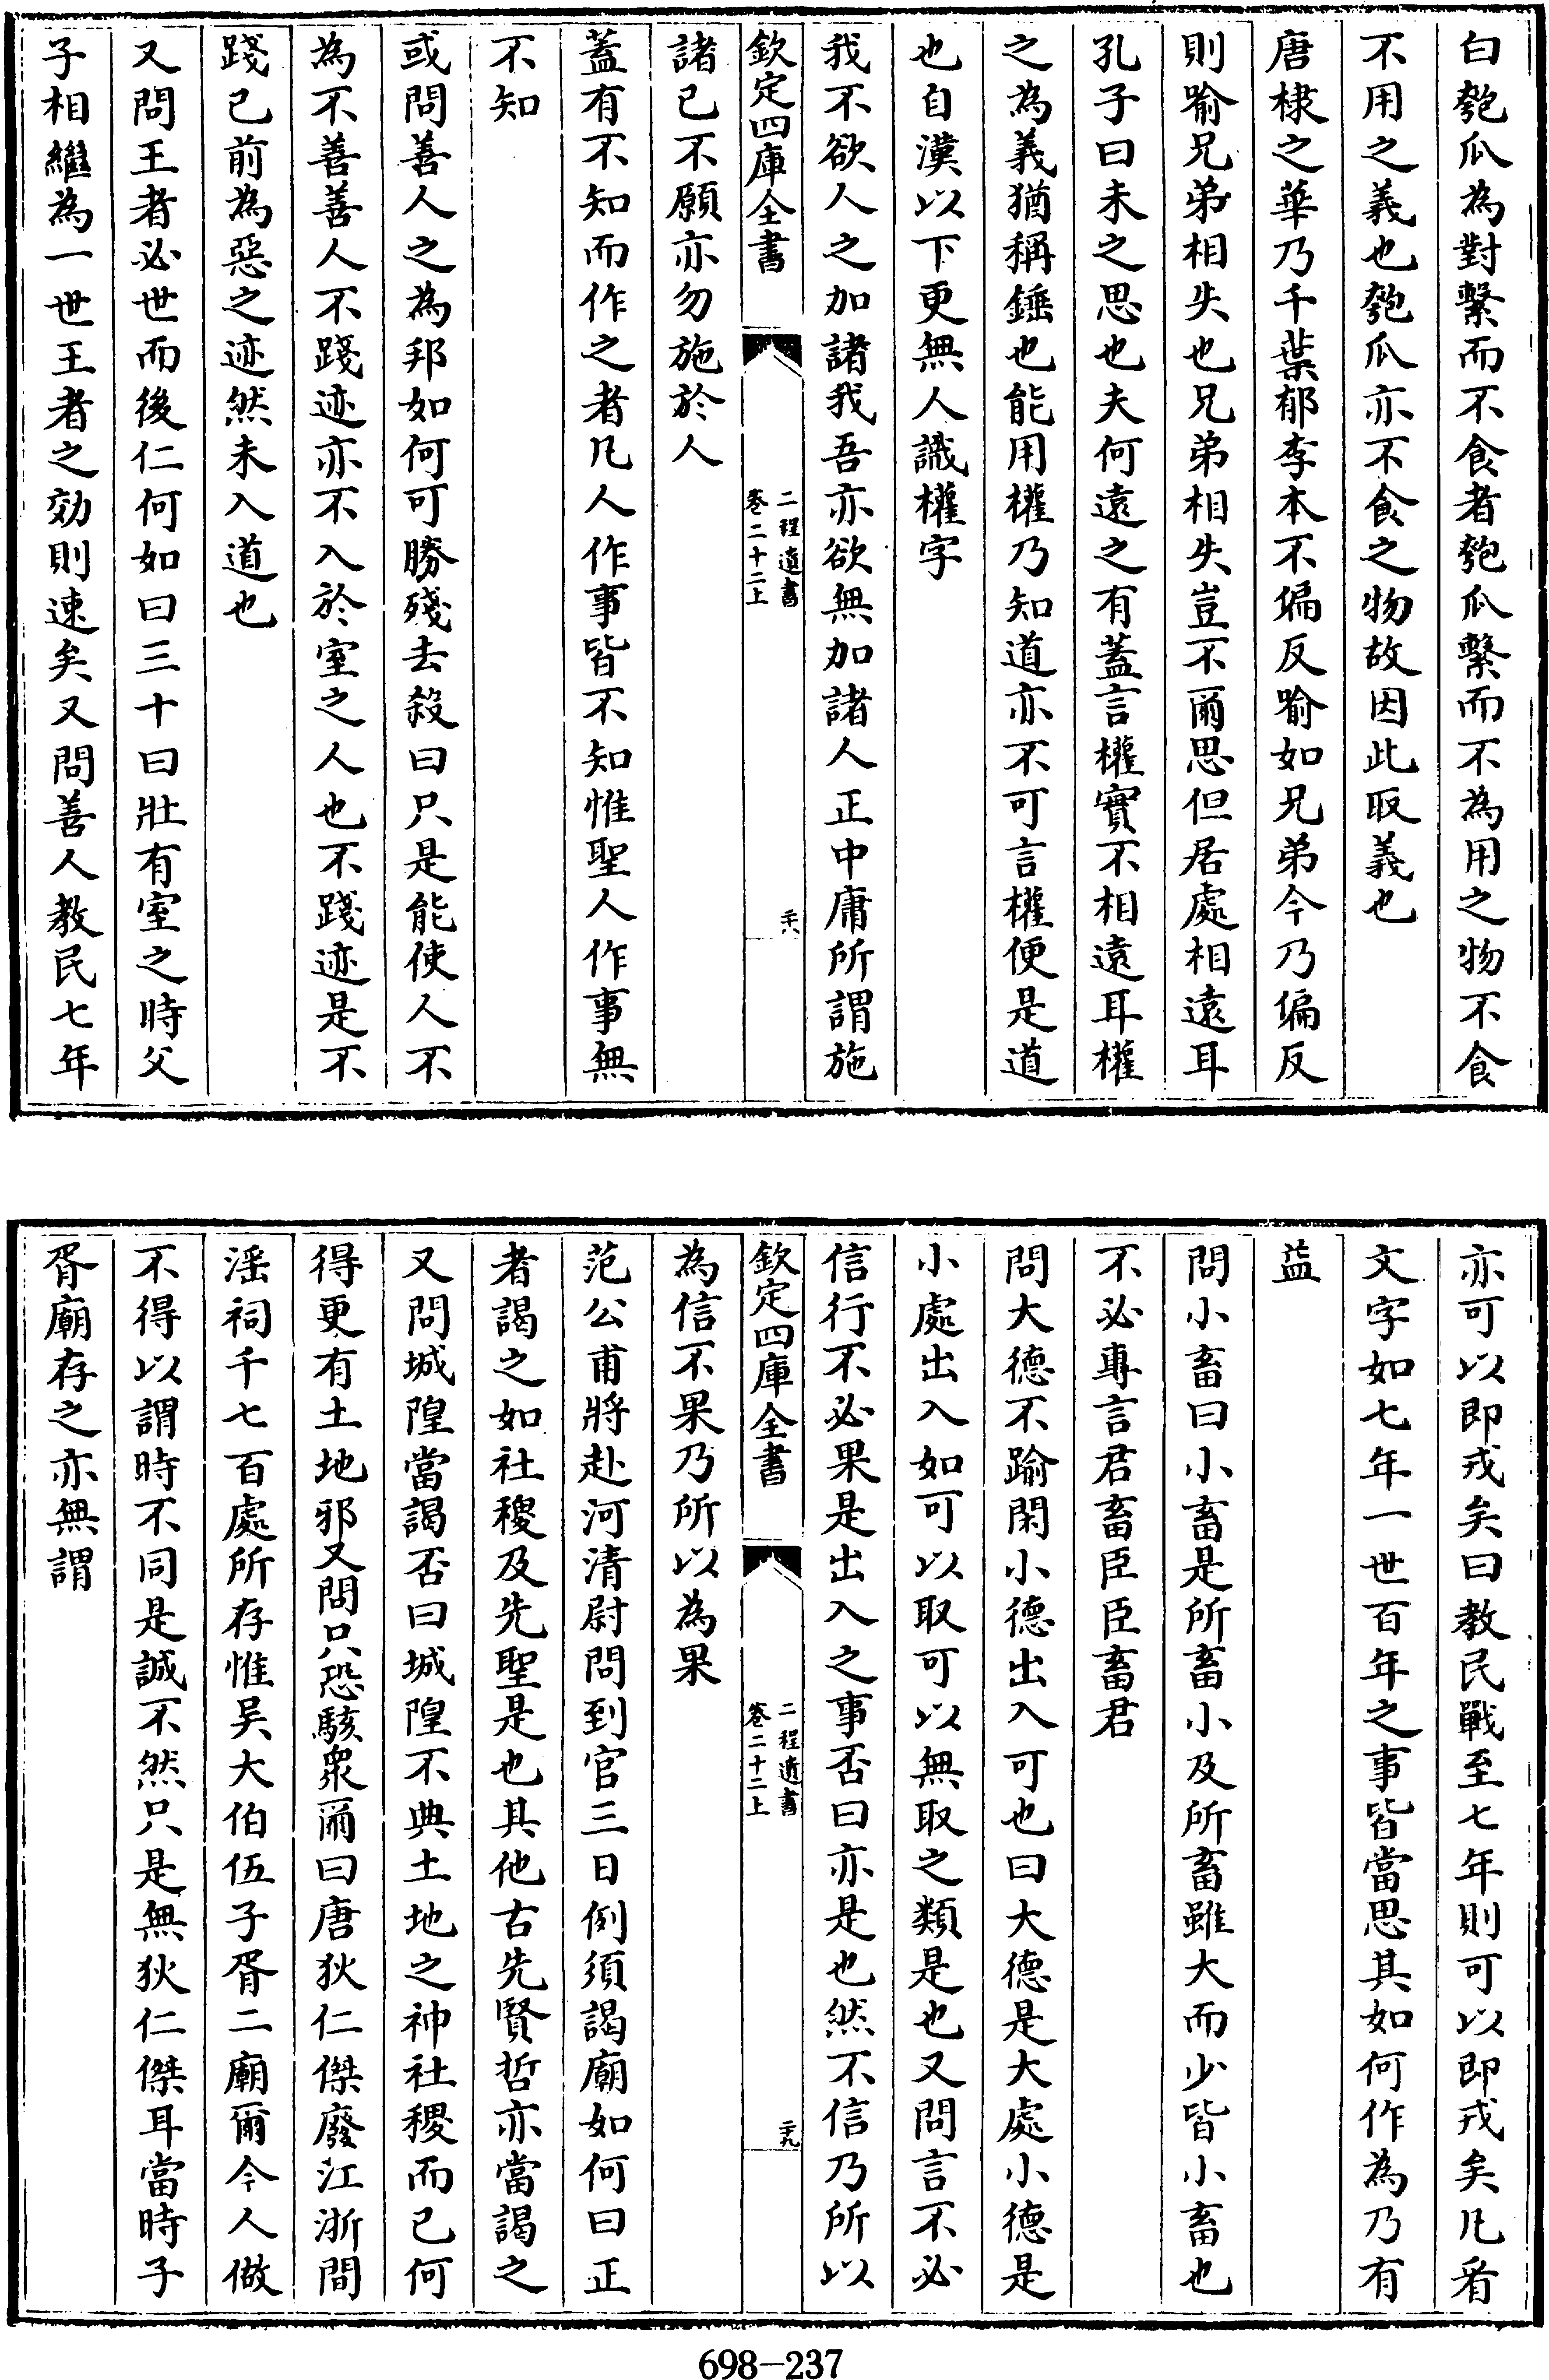 白匏瓜為對繫而不食者匏瓜繫而不為用之物不食
不用之義也匏瓜亦不食之物故因此取義也
唐棣之華乃千葉郁李本不偏反喻如兄弟今乃偏反
則喻兄弟相失也兄弟相失豈不爾思但居處相遠耳
孔子曰未之思也夫何遠之有蓋言權實不相遠耳權
之為義猶稱錘也能用權乃知道亦不可言權便是道
也自漢以下更無人識權字
我不欲人之加諸我吾亦欲無加諸人正中庸所謂施
欽定四庫全書
二程遺書
卷二十二上
二十八
諸己不願亦勿施於人
蓋有不知而作之者凡人作事皆不知惟聖人作事無
不知
或問善人之為邦如何可勝殘去殺曰只是能使人不
為不善善人不踐迹亦不入於室之人也不踐迹是不
踐己前為惡之迹然未入道也
又問王者必世而後仁何如曰三十曰壯有室之時父
子相繼為一世王者之効則速矣又問善人教民七年
亦可以即戎矣曰教民戰至七年則可以即戎矣凡看
文字如七年一世百年之事皆當思其如何作為乃有
益
問小畜曰小畜是所畜小及所畜雖大而少皆小畜也
不必專言君畜臣臣畜君
問大德不踰閑小德出入可也曰大德是大處小德是
小處出入如可以取可以無取之類是也又問言不必
信行不必果是出入之事否曰亦是也然不信乃所以
欽定四庫全書
二程遺書
卷二十二上
二十九
為信不果乃所以為果
范公甫將赴河清尉問到官三日例須謁廟如何曰正
者謁之如社稷及先聖是也其他古先賢哲亦當謁之
又問城隍當謁否曰城隍不典土地之神社稷而已何
得更有土地邪又問只恐駭衆爾曰唐狄仁傑廢江浙間
淫祠千七百處所存惟吳大伯伍子胥二廟爾今人做
不得以謂時不同是誠不然只是無狄仁傑耳當時子
胥廟存之亦無謂
698-237